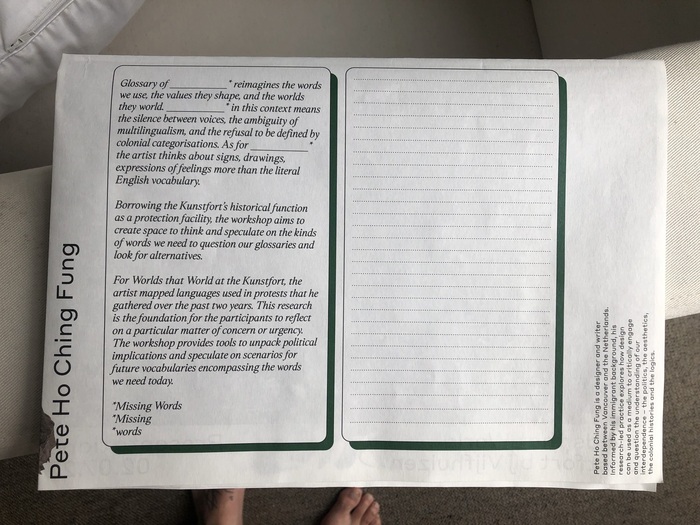 Pete Ho Ching Fung
Glossary of ____________* reimagines the words
we use, the values they shape, and the worlds
they world. ____________* in this context means
the silence between voices, the ambiguity of
multilingualism, and the refusal to be defined by
colonial categorisations. As for ____________*
the artist thinks about signs, drawings,
expressions of feelings more than the literal
English vocabulary.
Borrowing the Kunstfort's historical function
as a protection facility, the workshop aims to
create space to think and speculate on the kinds
of words we need to question our glossaries and
look for alternatives.
For Worlds that World at the Kunstfort, the
artist mapped languages used in protests that he
gathered over the past two years. This research
is the foundation for the participants to reflect
on a particular matter of concern or urgency.
The workshop provides tools to unpack political
implications and speculate on scenarios for
future vocabularies encompassing the words
we need today.
*Missing Words
*Missing
*words
Pete Ho Ching Fung is a designer and writer
based between Vancouver and the Netherlands.
Informed by his immigrant background, his
research-led practice explores how design
can be used as a medium to critically engage
and question the understanding of our
interdependence – the politics, the aesthetics,
the colonial histories and the logics.